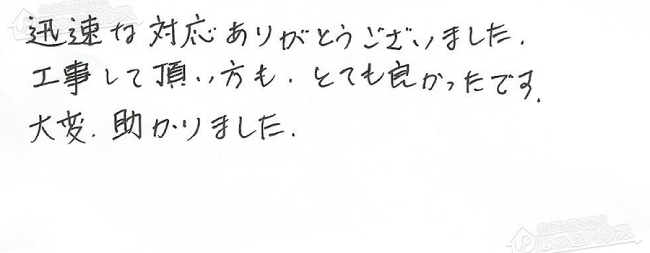 迅速な対応ありがとうございました.
工事して頂い方も、とても良かったです.
大変、助かりました.